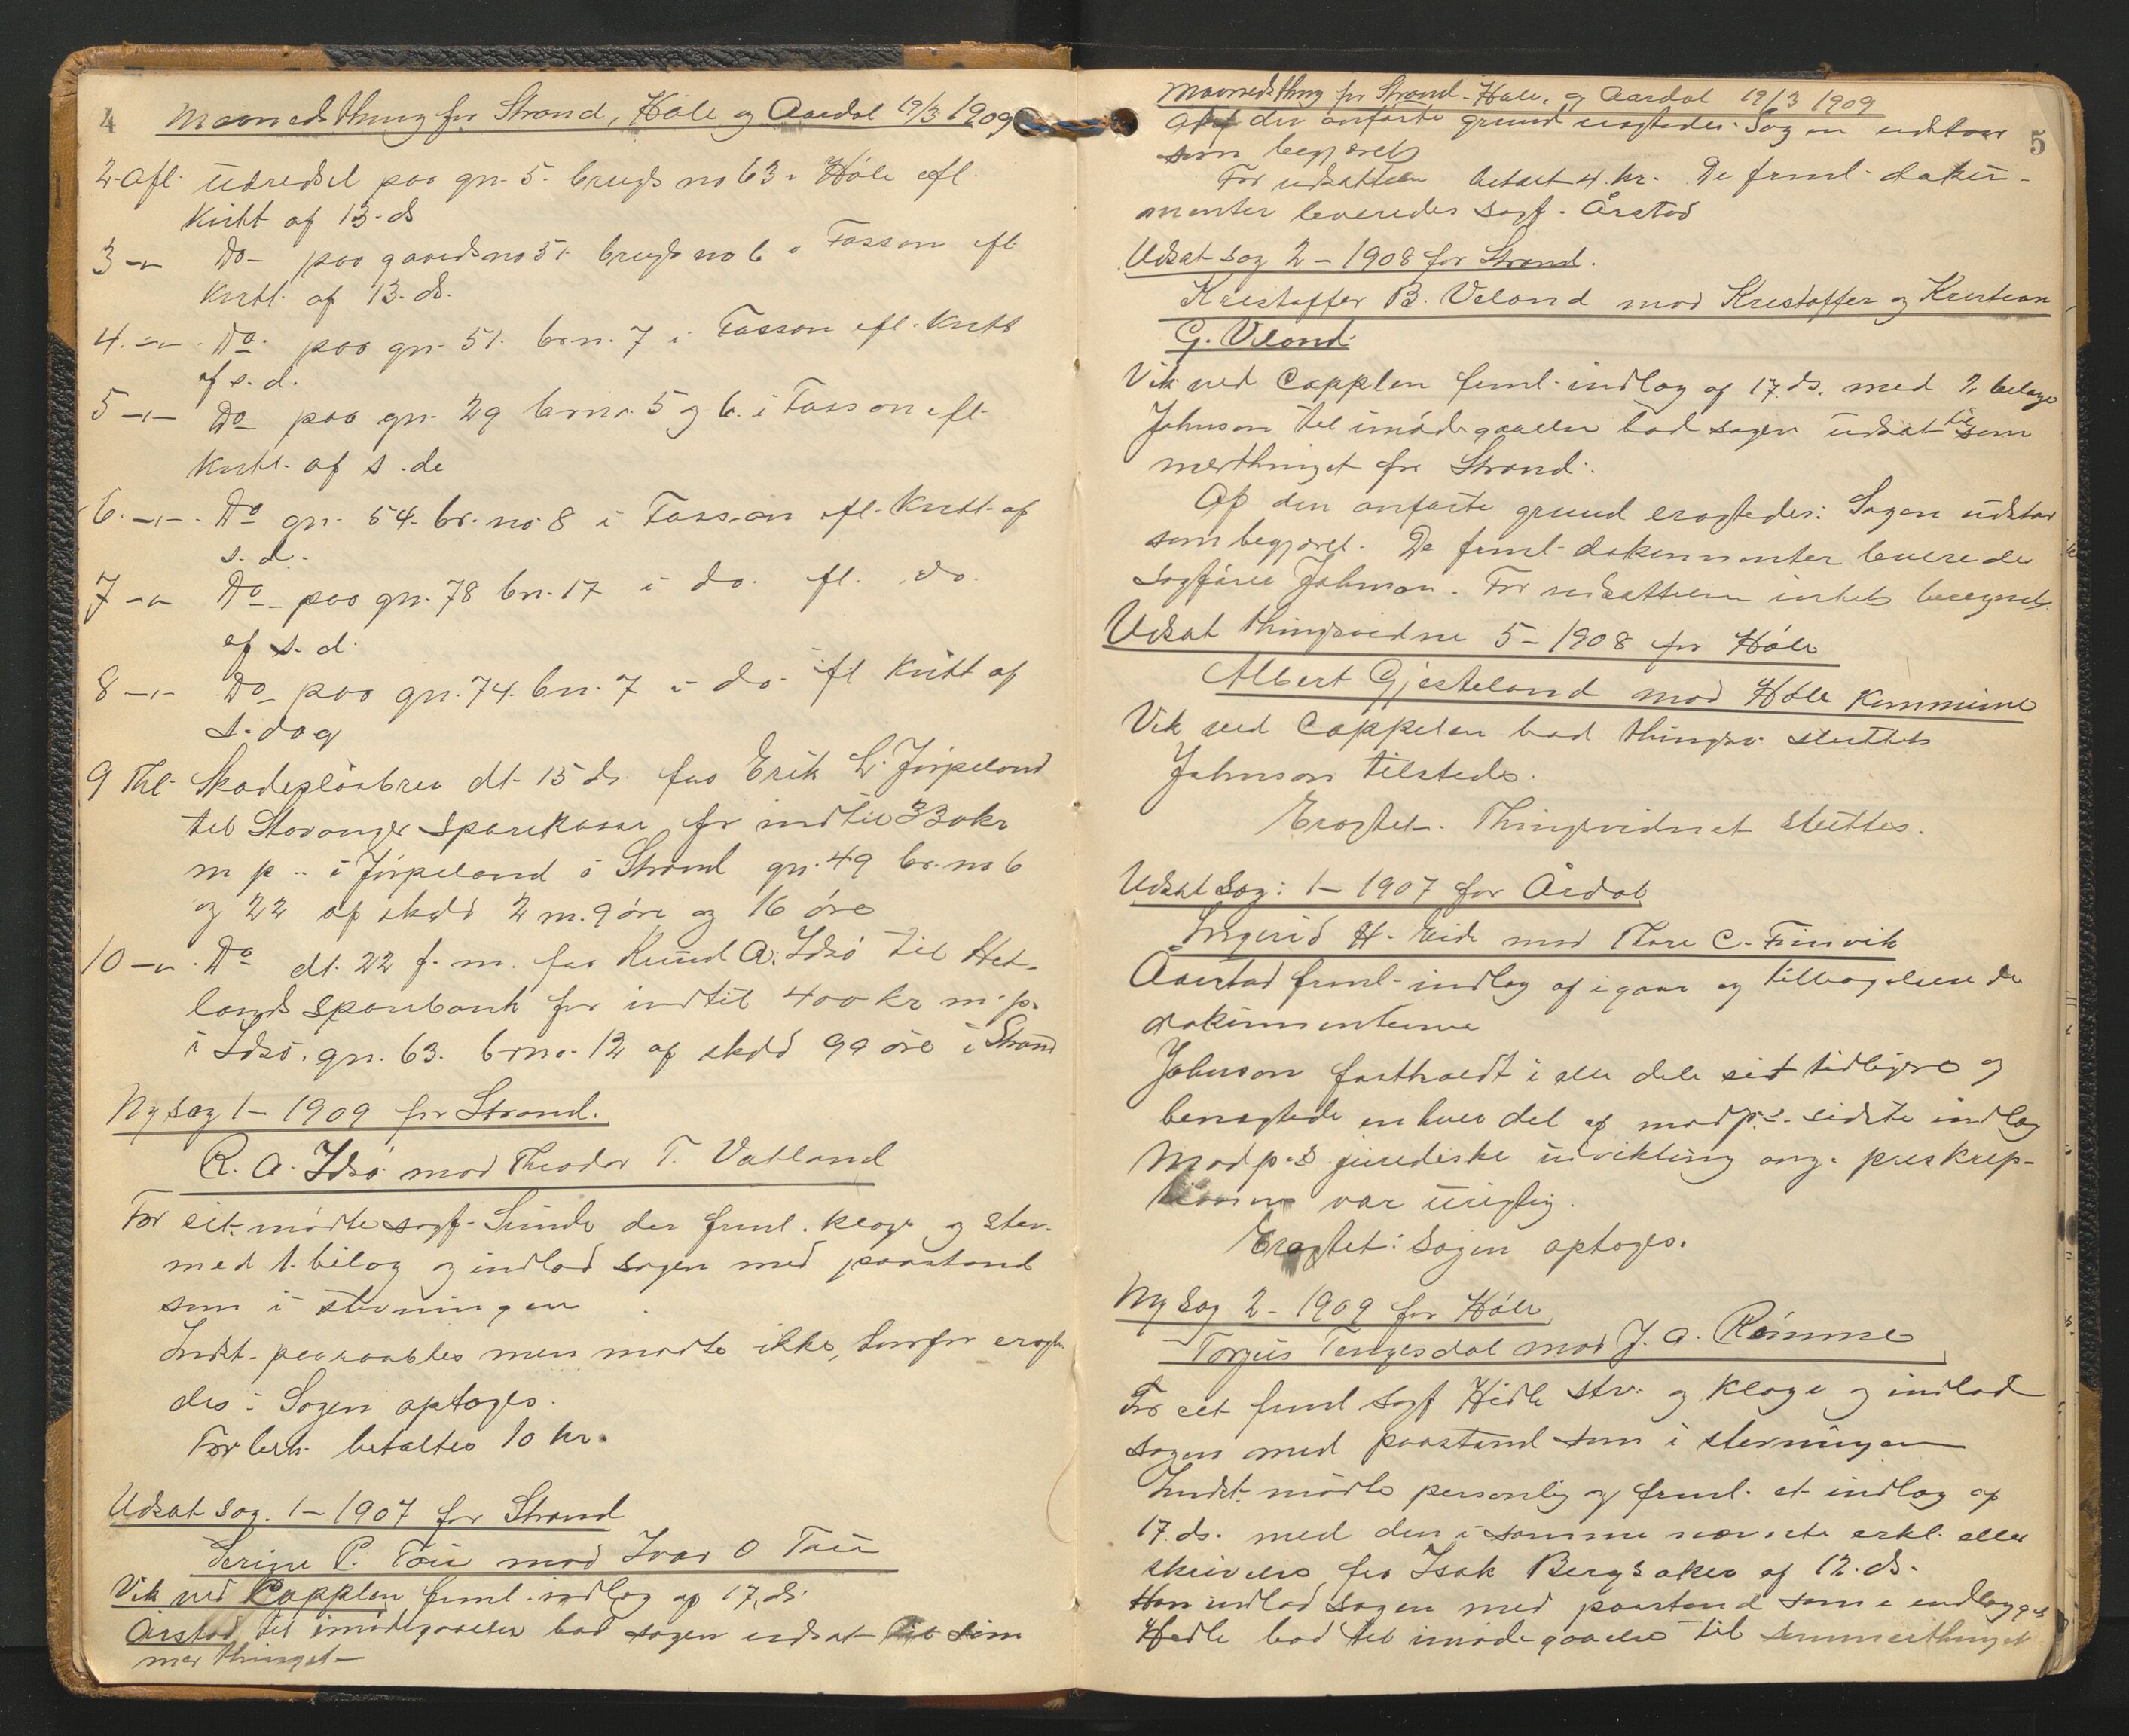 4
Maanedsthing for Strand, Höle og Aardal 19/3 1909
2. afl. Udredsel paa gn. 5. brugs no 63 i Höle efl.
kvitt af 13. ds
3 -"- Do paa gaards no 51. brugs no 6 i Fossan efl.
kvitt. af 13. ds.
4. -"- Do. paa gn. 51. brn. 7 i Fossan efl. kvitt
af s. d.
5 -"- Do paa gn. 29 brno. 5 og 6. i Fossan efl.
kvitt. af s. da
6. -"- Do gn. 54. br. no. 8 i Fossan efl. kvitt. af
s. d.
7 -"- Do paa gn. 78 bn. 17 i do. efl. do.
af s. d.
8 -"- Do paa gn. 74. bn. 7 i do. efl kvitt af
s. dag
9 Thl. Skadeslösbrev dt. 15 ds fra Erik L. Jörpeland
til Stavanger Sparekasse for indtil 330 kr
m p .. i Jörpeland i Strand gn. 49 br. no 6
og 22 af skyld 2 m. 9 öre og 16 öre
10 -"- Do dt. 22 f. m. fra Knud A. Idsö til Het-
lands Sparebank for indtil 400 kr m. p.
i Idsö. gn. 63. brno. 12 af skyld 99 öre i Strand
Ny sag 1 - 1909 for Strand.
R. A. Idsö mod Theodor T. Vatland
For cit. mödte sagf. Sunde der freml. klage og stev.
med 1. bilag og indlod sagen med paastand
som i stevningen
Indst. paaraabtes men mödte ikke, hvorfor eragte
des: Sagen optages.
For beh. betaltes 10 kr.
Udsat sag. 1 - 1907 for Strand
Serine P. Tou mod Ivar O Tou
Vik ved Capplen freml. indlæg af 17. ds.
Årstad til imödegaaelse bad sagen udsat til som
merthinget -
Maanedsthing for Strand - Höle, og Aardal 19/3 1909
5
Af den anförte grund eragtedes: Sagen udstaar
som begjæret
For udsættelsen betalt 4. kr. De freml. doku-
menter leveredes sagf. Årstad
Udsat sag 2 - 1908 for Strand.
Kristoffer B. Veland mod Kristoffer og Kristian
G. Veland.
Vik ved Capplen freml. indlæg af 17. ds. med 2 bilage
Johnson til imödegaaelse bad sagen udsat til som
merthinget for Strand.
Af den anförte grund eragtedes: Sagen udstaar
som begjæret. De freml. dokumenter leveredes
sagförer Johnson. For udsættelsen intet beregnet
Udsat thingsvidne 5 - 1908 for Höle
Albert Gjesteland mod Höle Kommune
Vik ved Cappelen bad thingsv. sluttet
Johnson tilstede.
Eragtet. Thingsvidnet sluttes.
Udsat Sag: 1 - 1907 for Årdal
Ingerid H. Eide mod Thore C. Finvik
Aarstad freml. indlæg af igaar og tilbageleverede
dokumenterne
Johnson fastholdt i alle dele sit tidligere og
benegtede enhver del af modp.s. sidste indlæg
Modp.s juridiske udvikling ang. preskrip-
tionen var urigtig.
Eragtet: Sagen optages.
Ny Sag 2 - 1909 for Höle
Torgius Tengesdal mod J. A. Römme
For cit freml sagf Hidle stv. og klage og indlod
sagen med paastand som i stevningen
Indst. mödte personlig og freml. et indlæg af
17. ds. med den i samme nævnte erkl. eller
skrivelse fra Isak Bergsaker af 12. ds.
Han indlod sagen med paastand som i indlægget
Hidle bad til imödegaaelse til sommerthinget